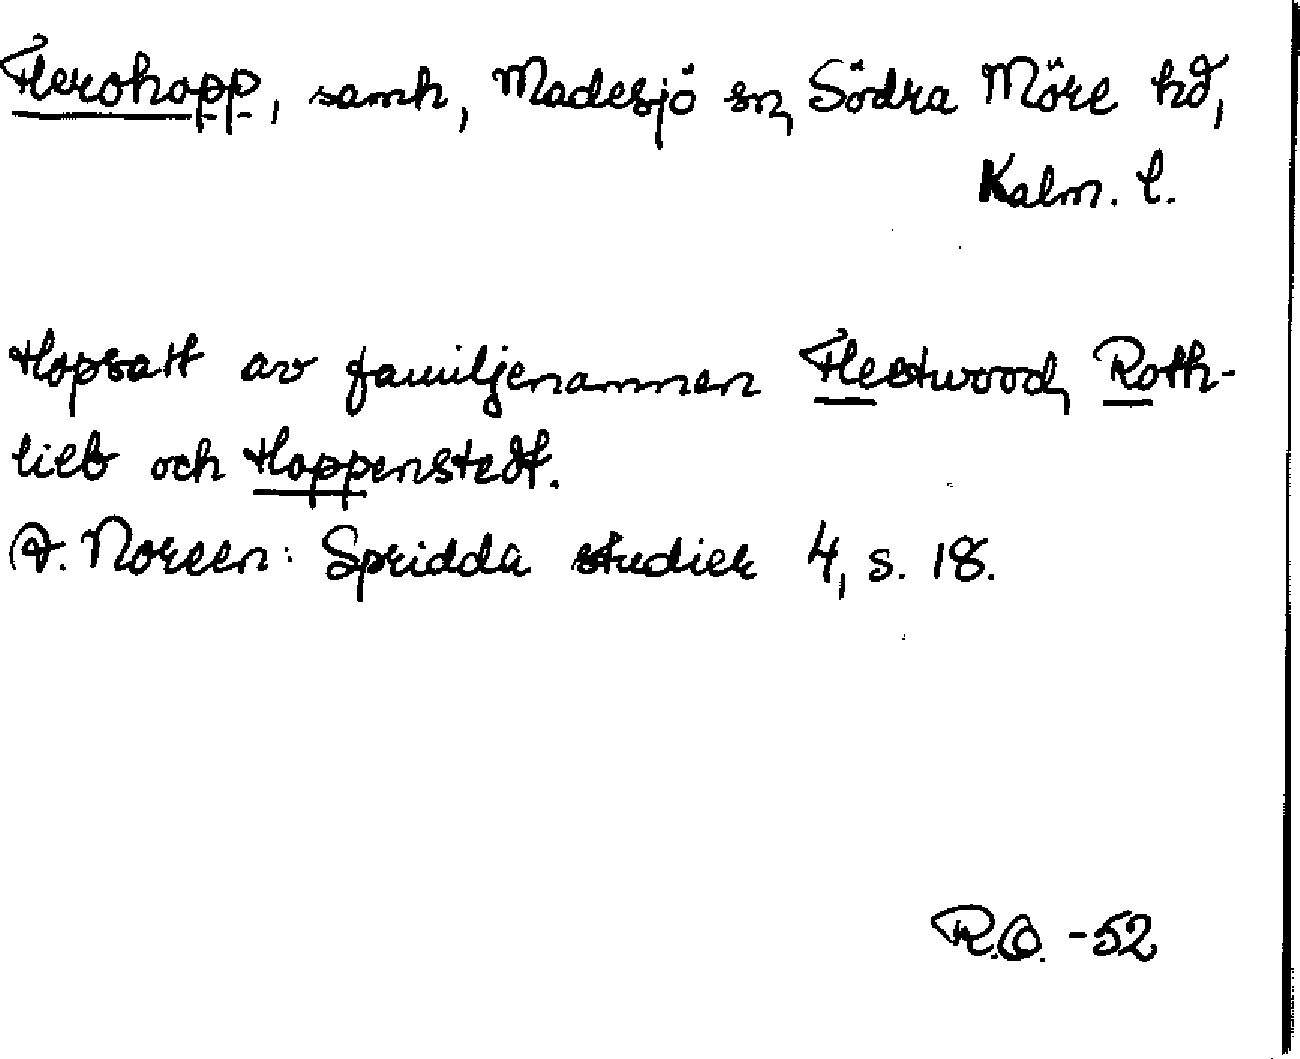 Flerohopp, samh, Madesjö sn, Södra Möre hd,
Kalm. l.
Hopsatt av familjenamnen Fleetwood, Roth-
lieb och Hoppenstedt.
A. Noreen: Spridda studier 4, s. 18.
R.O. -52